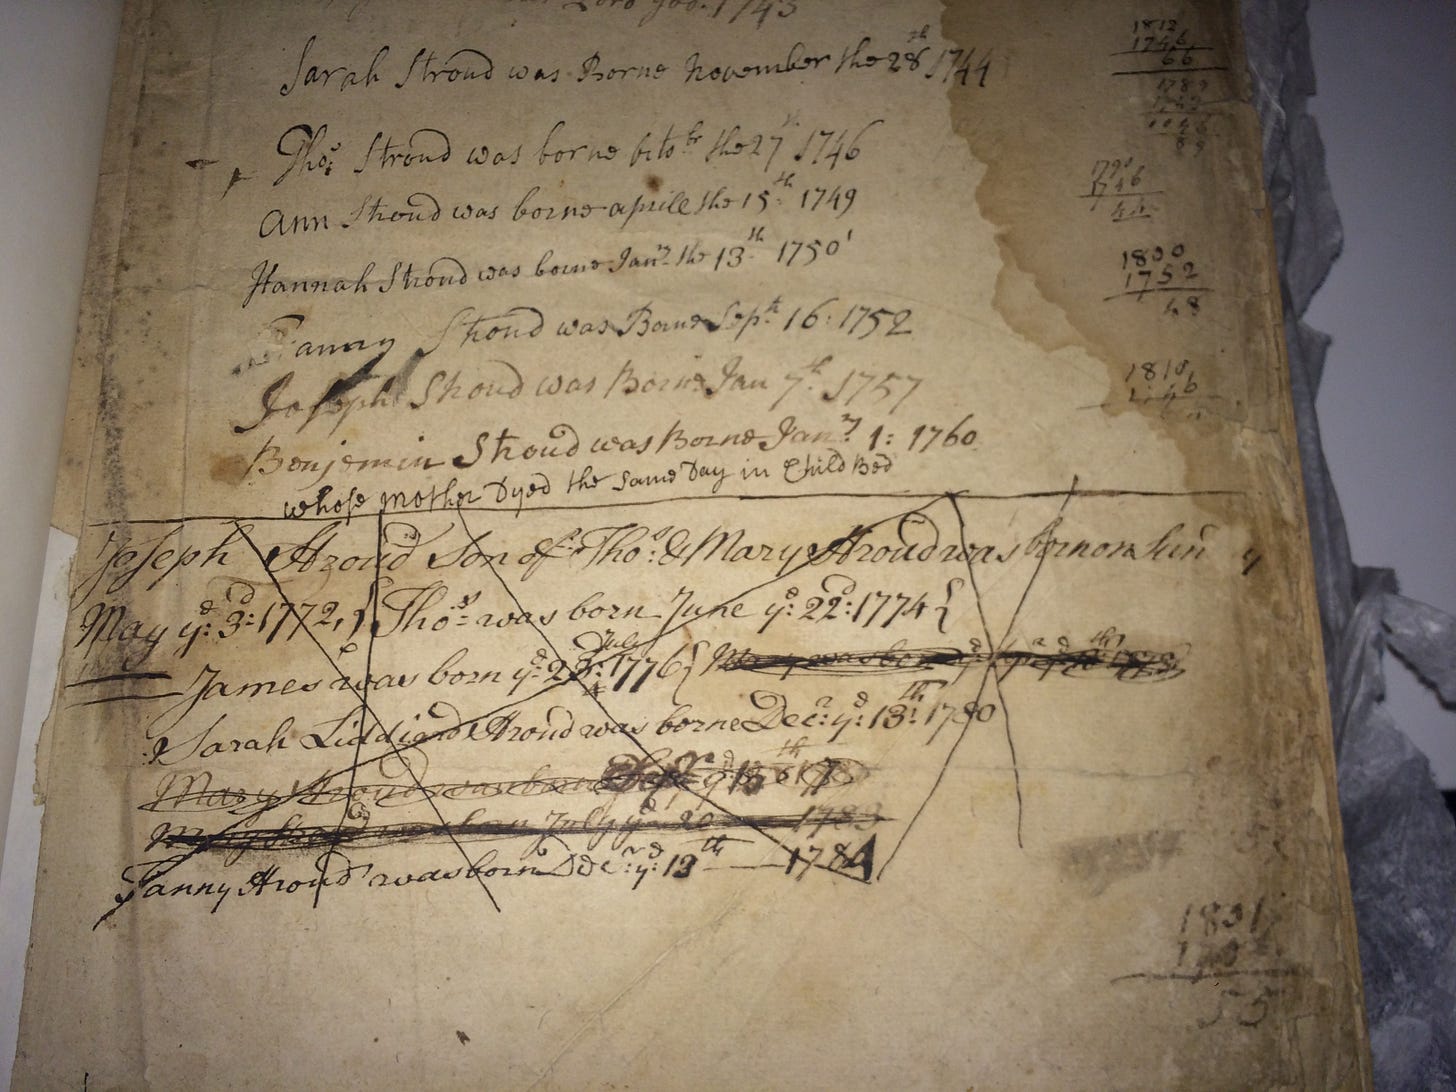 Lord god. 1743
Sarah Stroud was Borne november the 28th 1744
Thos Stroud was borne the 27th 1746
Ann Stroud was borne aprill the 15th 1749
Hannah Stroud was borne Janry the 13th 1750
Fanny Stroud was Borne Sept 16: 1752
Joseph Stroud was Borne Jan 7th 1757
Benjemin Stroud was Borne Janry 1: 1760
whose mother Dyed the same Day in Child Bed
Joseph Stroud Son of Thos: & Mary Stroud was born on
May ye: 3d: 1772, } Thos: was born June ye: 22d: 1774 {
James was born ye: July 1776 { Mary was born
Sarah Liddiard Stroud was borne Decr: ye: 13th: 1780
Mary Stroud was born
Mary Stroud was born July ye 20 1783
Fanny Stroud was born Decr: ye: 13th 1784
1812
1746
66
1789
1746
44
1800
1752
48
1810
1801
55